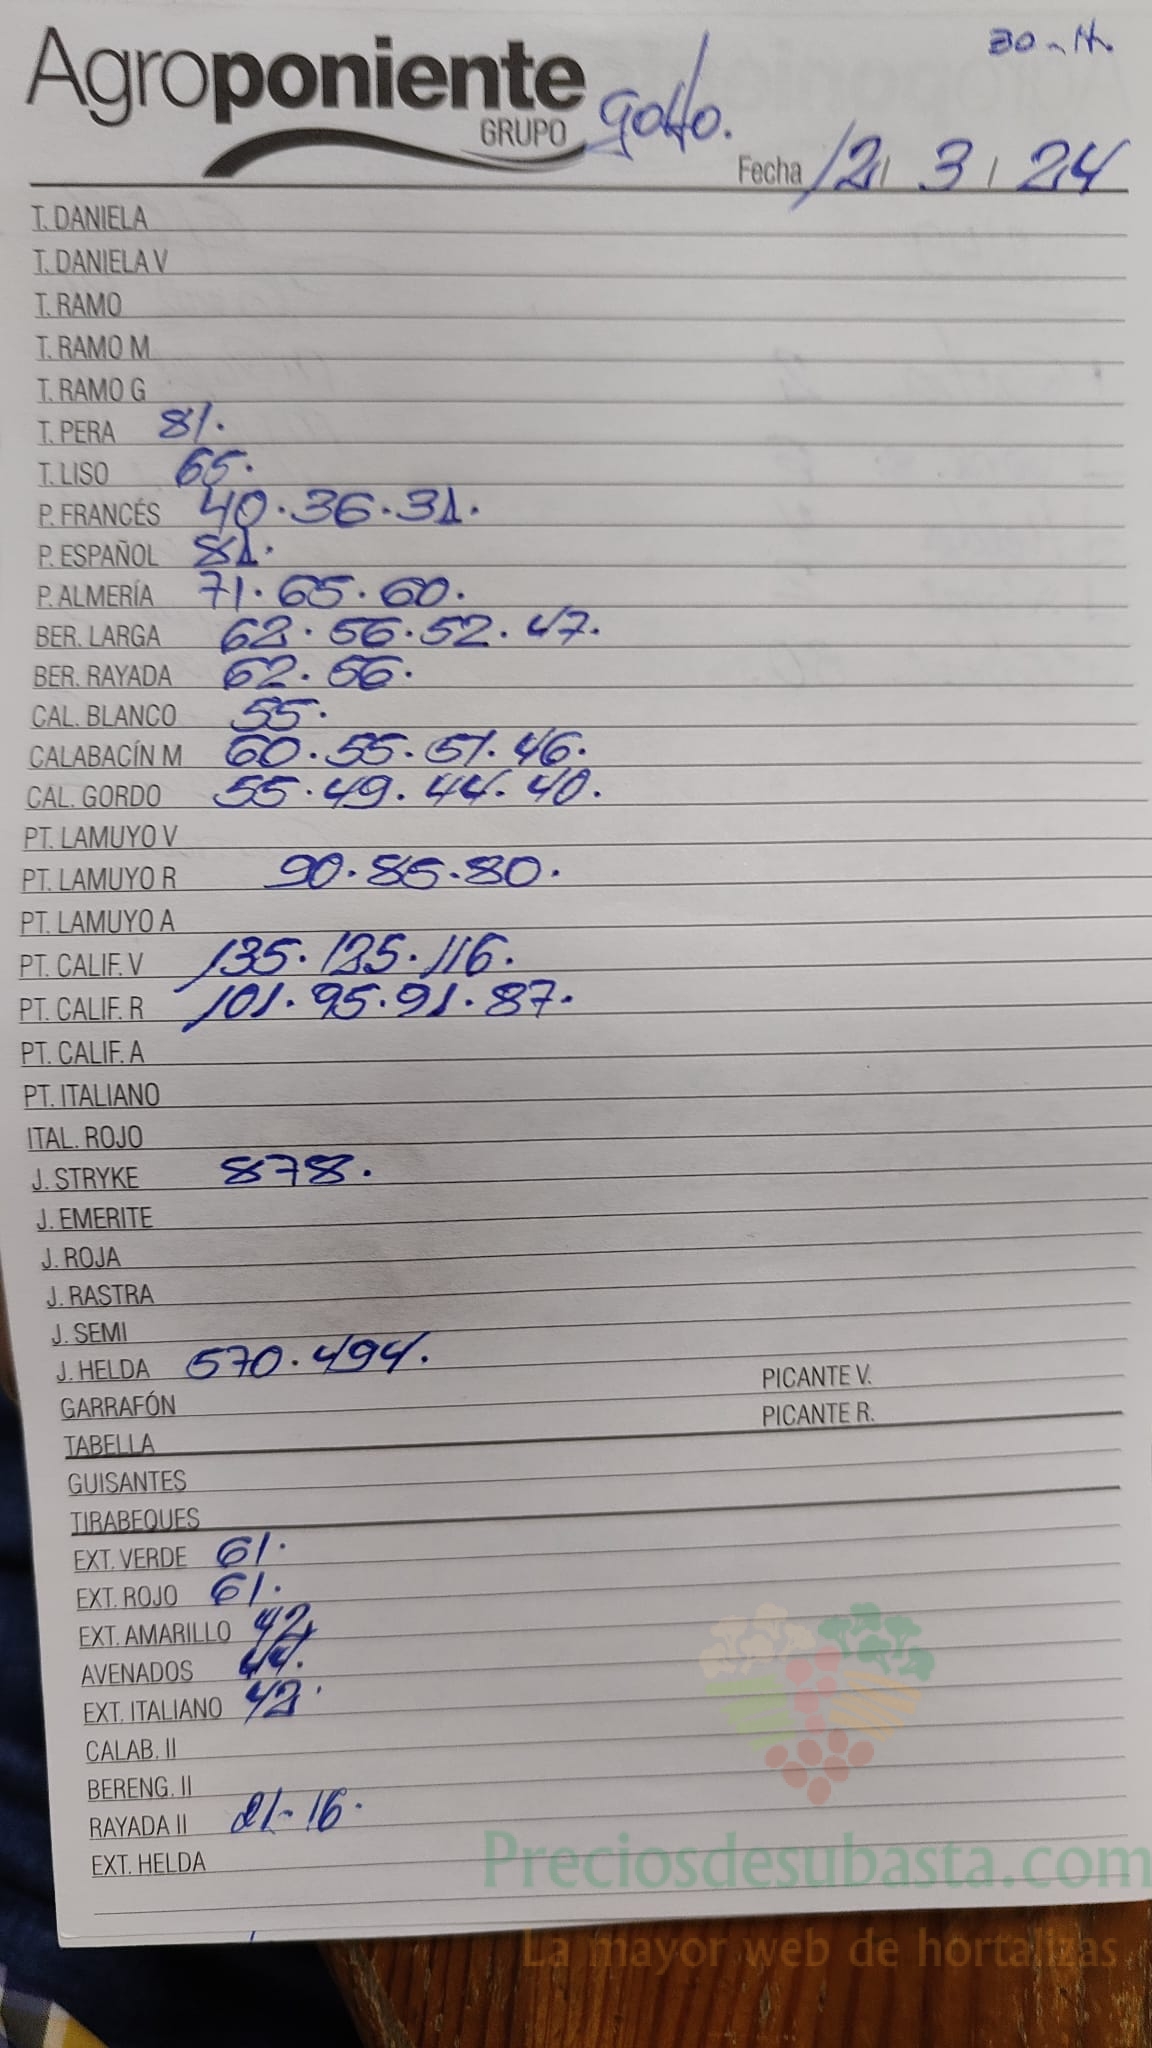 30-14.
Agroponiente
GRUPO
Fecha 12 / 3 / 24
T. DANIELA
T. DANIELA V
T. RAMO
T. RAMO M
T. RAMO G
T. PERA 81.
T. LISO 65.
P. FRANCÉS 40.36.31.
P. ESPAÑOL 81.
P. ALMERÍA 71.65.60.
BER. LARGA 62.56.52.47.
BER. RAYADA 62.56.
CAL. BLANCO 55.
CALABACÍN M 60.55.51.46.
CAL. GORDO 55.49.44.40.
PT. LAMUYO V
PT. LAMUYO R 90.85.80.
PT. LAMUYO A
PT. CALIF. V 135.125.116.
PT. CALIF. R 101.95.91.87.
PT. CALIF. A
PT. ITALIANO
ITAL. ROJO
J. STRYKE 878.
J. EMERITE
J. ROJA
J. RASTRA
J. SEMI
J. HELDA 570.494.
PICANTE V.
GARRAFÓN
PICANTE R.
TABELLA
GUISANTES
TIRABEQUES
EXT. VERDE 61.
EXT. ROJO 61.
EXT. AMARILLO 42
AVENADOS 44.
EXT. ITALIANO 42.
CALAB. II
BERENG. II
RAYADA II 21-16.
EXT. HELDA
Preciosdesubasta.com
La mayor web de hortalizas